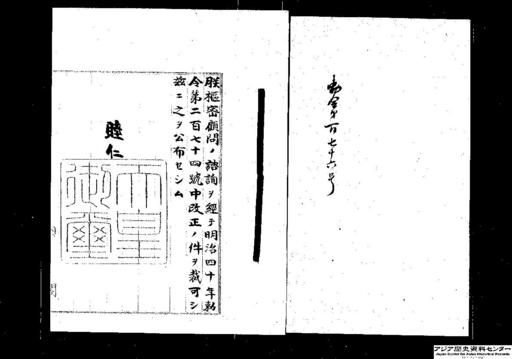 勅令第百七十六号
朕樞密顧問ノ諮詢ヲ經テ明治四十年勅
令第二百七十四號中改正ノ件ヲ裁可シ
茲ニ之ヲ公布セシム
睦仁
天皇
御璽
アジア歴史資料センター
Japan Center for Asian Historical Records